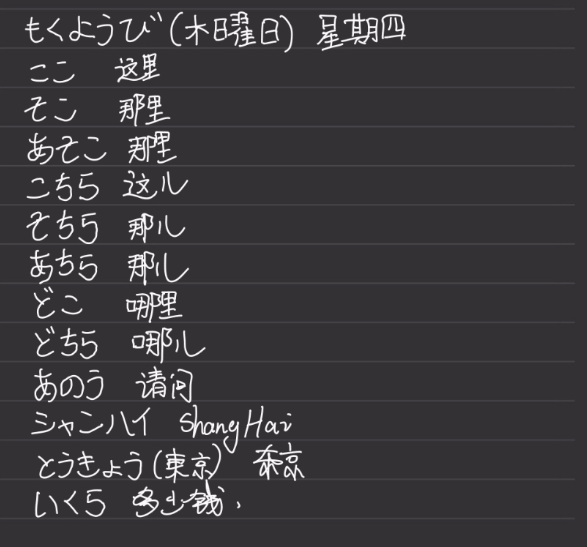 もくようび (木曜日) 星期四
ここ 这里
そこ 那里
あそこ 那里
こちら 这儿
そちら 那儿
あちら 那儿
どこ 哪里
どちら 哪儿
あのう 请问
シャンハイ ShangHai
とうきょう (東京) 东京
いくら 多少钱.